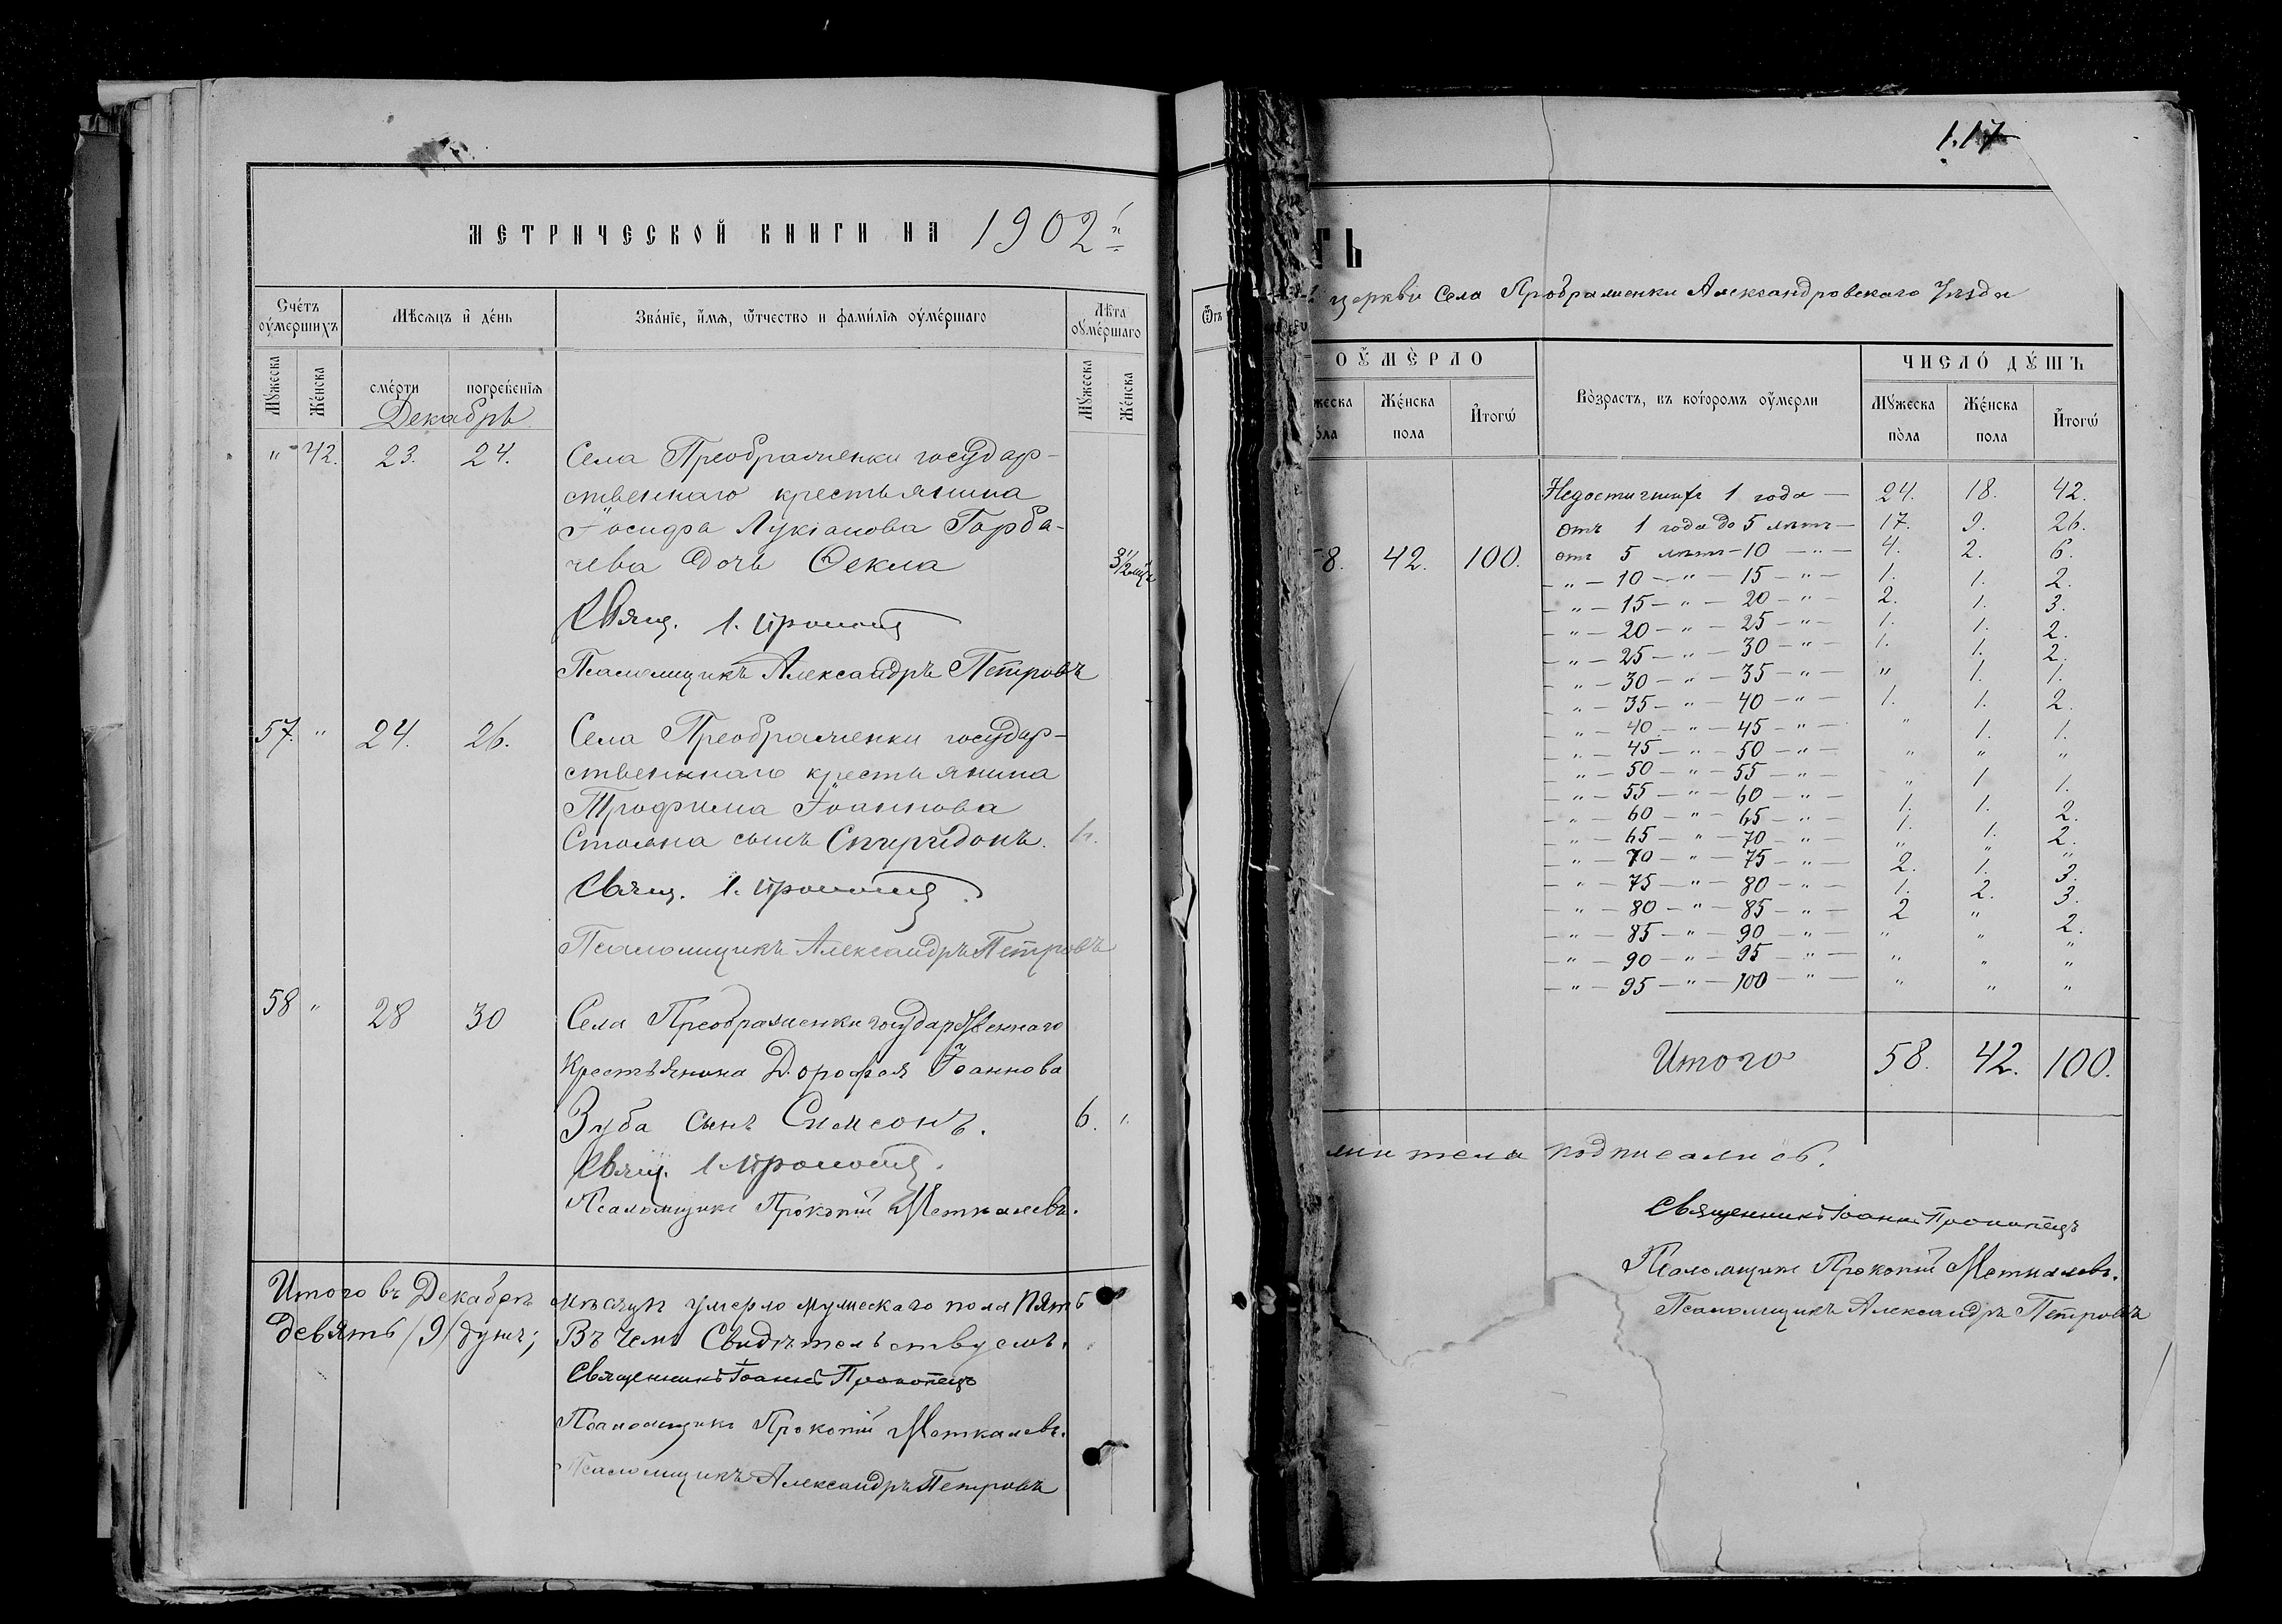 МЕТРИЧЕСКОЙ КНИГИ НА 1902 й
Счётъ оумершихъ
Мѣсяцъ и день
Званіе, имя, отчество и фамилія оумершаго
Лѣта оумершаго
Мужеска
Женска
смерти
погребенія
Мужеска
Женска
Декабрь
" 42. 23. 24. Села Преображенки государ-
ственнаго крестьянина
Іосифа Лукіанова Горба-
чева дочь Ѳекла 3½ мц
Свящ. І.
Псаломщикъ Александръ Петровъ
57. " 24. 26. Села Преображенки государ-
ственнаго крестьянина
Трофима Іоаннова
сынъ Спиридонъ. 1.
Свящ. І.
Псаломщикъ Александръ Петровъ
58 " 28 30 Села Преображенки государственнаго
крестьянина Дорофея Іоаннова
Зуба сынъ Симеонъ. 6. "
Свящ. І.
Псаломщикъ Прокопій Меткалевъ.
Итого въ Декабрѣ мѣсяцѣ умерло мужескаго пола пять
девять /9/ душъ; Въ чемъ свидѣтельствуемъ.
Священникъ Іоаннъ Прокопецъ
Псаломщикъ Прокопій Меткалевъ.
Псаломщикъ Александръ Петровъ
Ѿ
117
ТЬ
церкви села Преображенки Александровскаго Уѣзда
ОУМЕРЛО
Возрастъ, въ которомъ оумерли
ЧИСЛО ДУШЪ
жеска пола
Женска пола
Итогѡ
Мужеска пола
Женска пола
Итогѡ
Недостигших 1 года — 24. 18. 42.
отъ 1 года до 5 лѣтъ — 17. 9. 26.
58. 42. 100. отъ 5 лѣтъ — 10 — " — 4. 2. 6.
— " — 10 — " — 15 — " — 1. 1. 2.
— " — 15 — " — 20 — " — 2. 1. 3.
— " — 20 — " — 25 — " — 1. 1. 2.
— " — 25 — " — 30 — " — 1. 1. 2.
— " — 30 — " — 35 — " — " 1. 1.
— " — 35 — " — 40 — " — 1. 1. 2.
— " — 40 — " — 45 — " — " 1. 1.
— " — 45 — " — 50 — " — " " "
— " — 50 — " — 55 — " — " 1 1.
— " — 55 — " — 60 — " — 1. 1. 2.
— " — 60 — " — 65 — " — 1. 1. 2.
— " — 65 — " — 70 — " — " " "
— " — 70 — " — 75 — " — 2. 1. 3.
— " — 75 — " — 80 — " — 1. 2. 3.
— " — 80 — " — 85 — " — 2 " 2.
— " — 85 — " — 90 — " — " " "
— " — 90 — " — 95 — " — " " "
— " — 95 — " — 100 — " — " " "
Итого 58. 42. 100.
подписались.
Священникъ Іоаннъ Прокопецъ
Псаломщикъ Прокопій Меткалевъ.
Псаломщикъ Александръ Петровъ